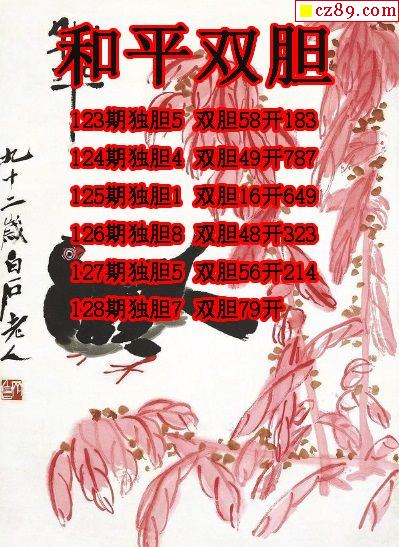 cz89.com
和平双胆
123期独胆5 双胆58开183
124期独胆4 双胆49开787
125期独胆1 双胆16开649
126期独胆8 双胆48开323
127期独胆5 双胆56开214
128期独胆7 双胆79开
九十二岁白石老人